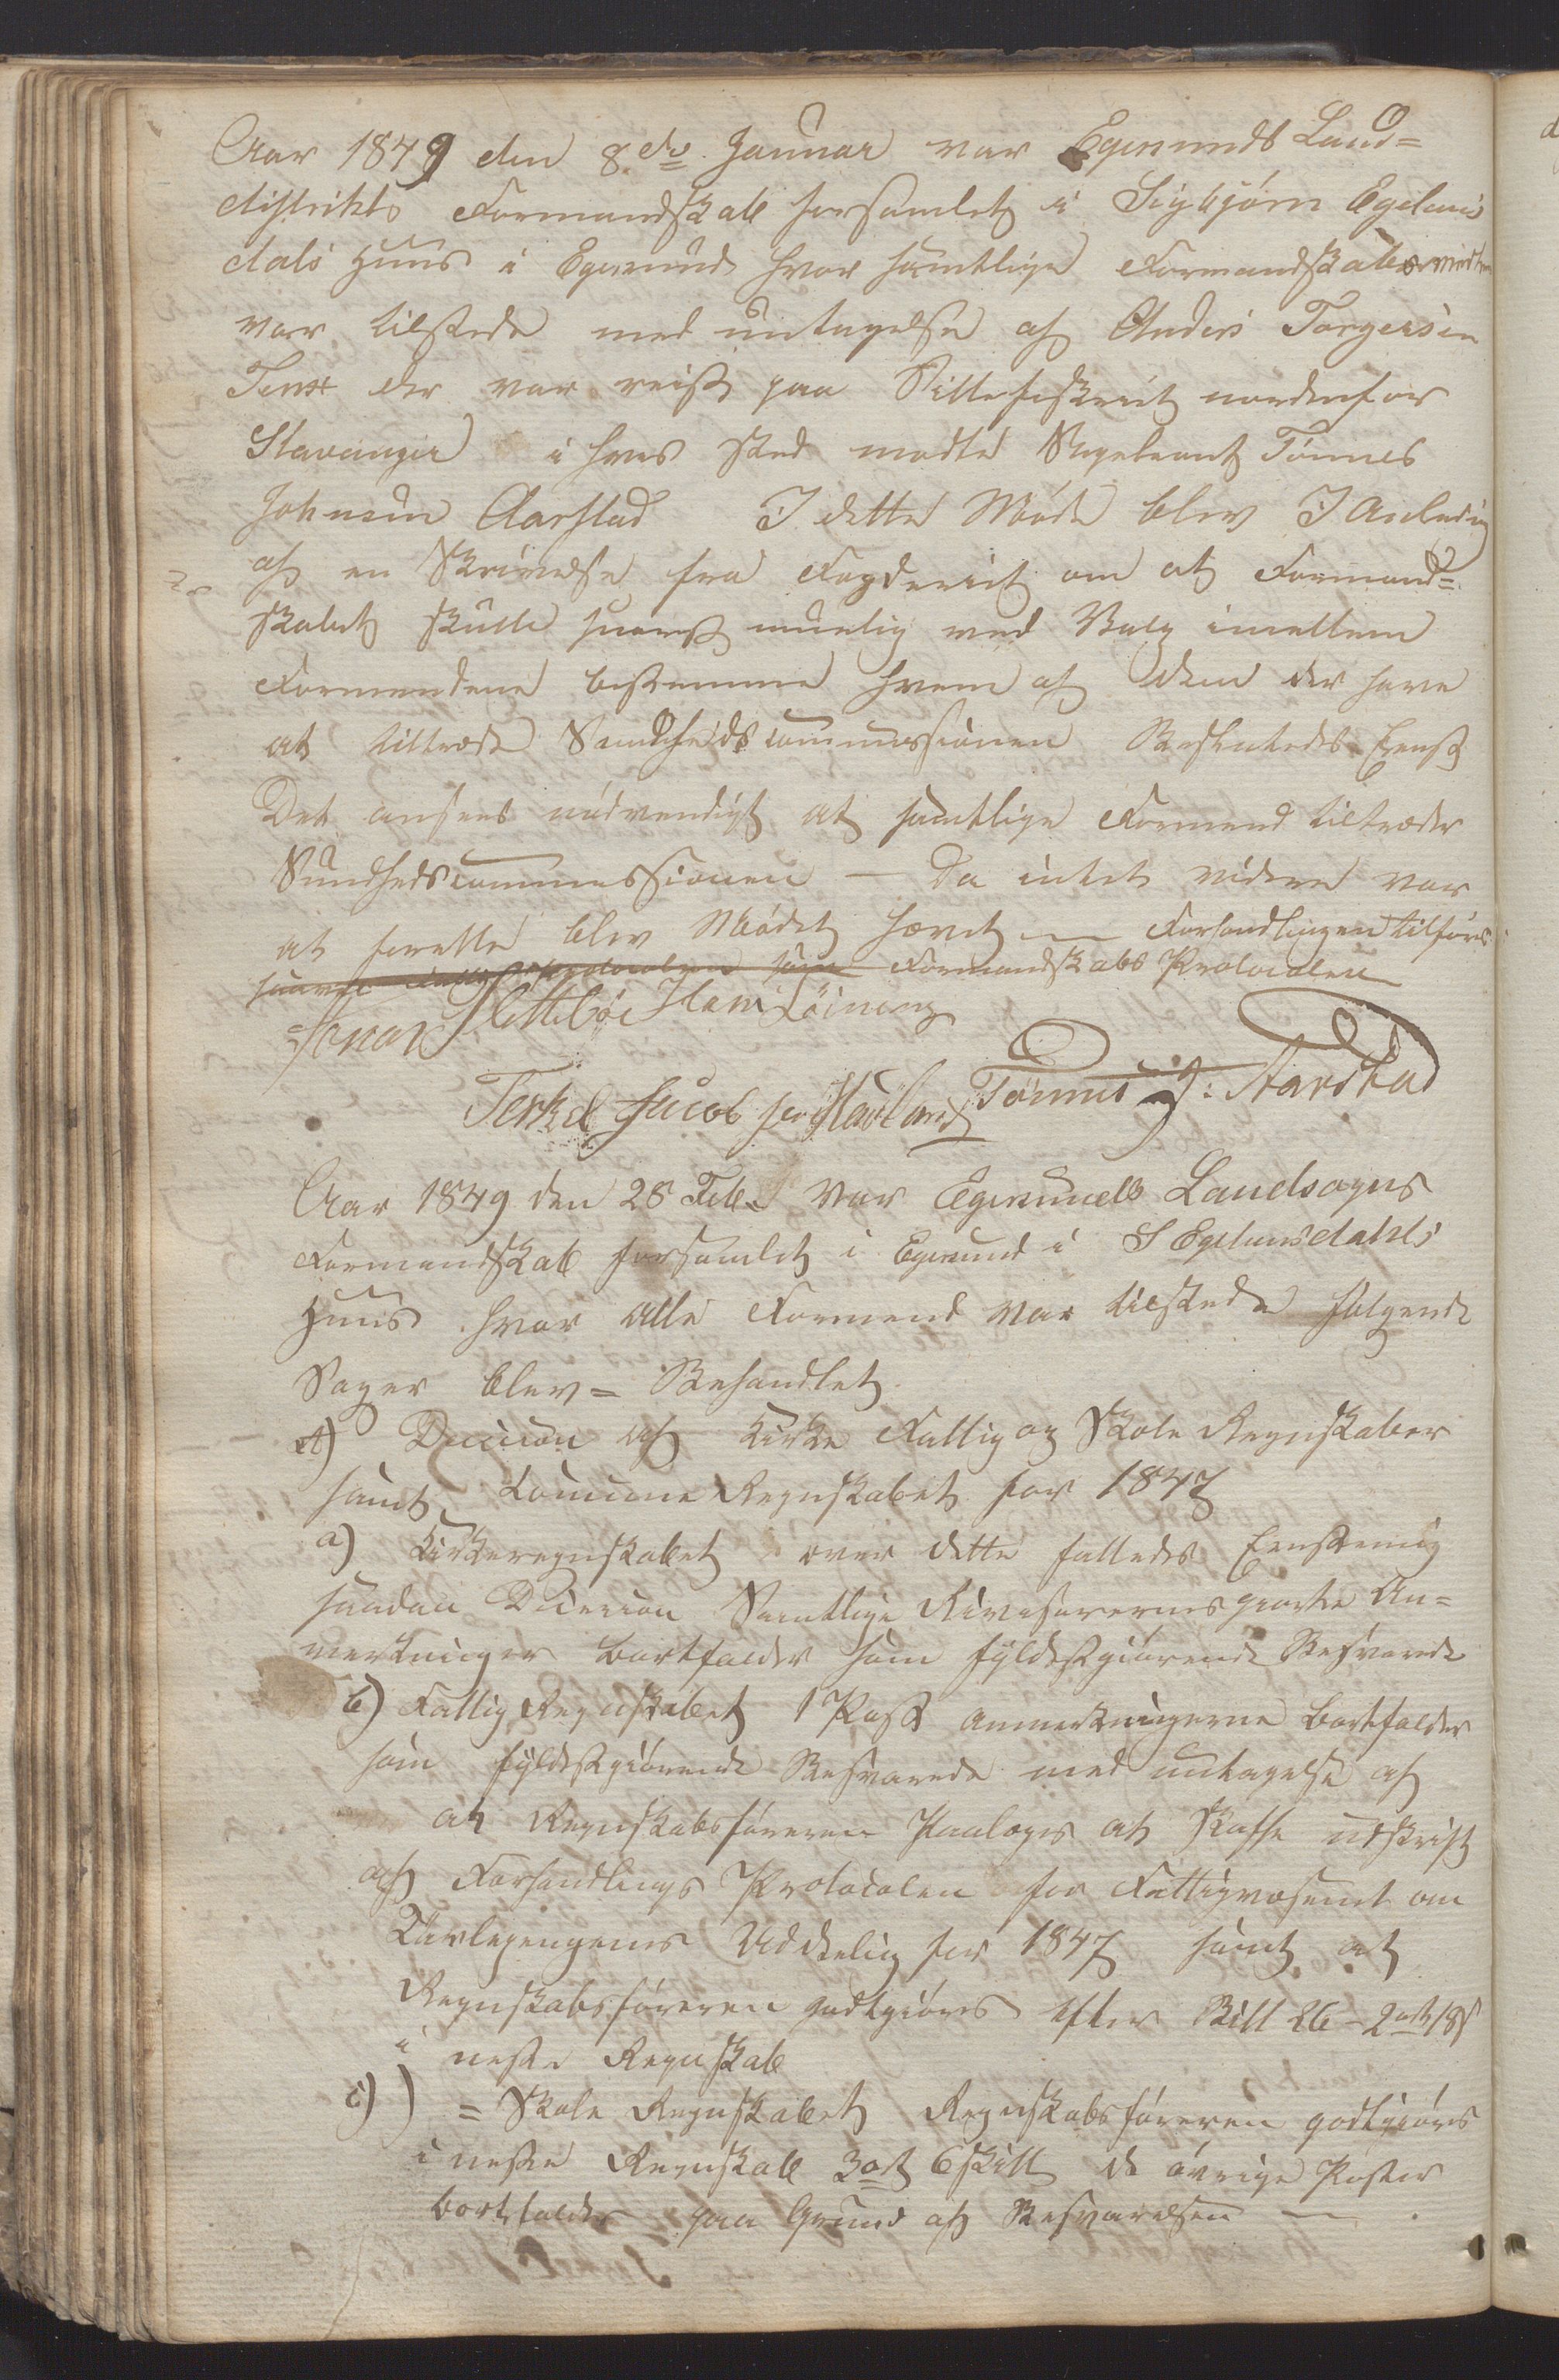 Aar 1849 den 8de Januar var Egersunds Land=
distrikts Formandskab forsamlet i Sigbjørn Egelands
dals Huus i Egersund hvor samtlige Formandskabsmedlem
var tilstede med untagelse af Anders Torgersen
Tenx der var reist paa Sillefiskeriet nordenfor
Stavanger i hvis Sted mødte Supleant Tønnes
Johnsen Aarstad I dette Møde blev I Anledning
af en Skrivelse fra Fogderiet om at Formand=
skabet skulle snarest muelig ved Valg imellem
Formendene bestemme hvem af dem der have
at tiltræde Sundhedscommissionen Besluttedes Eenst
Det ansees nødvendigt at samtlige Formend tiltræder
Sundhedscommessionen — Da intet videre var
at forrette blev Mødet hævet — Forhandlingen tilføres
Formandskabs Protocolen
Jonas Slettebøe Hans Löining
Terkel Jacobsen Hauland Tönnes J: Aarstad
Aar 1849 den 28 Feb. var Egersunds Landsogns
Formandskab forsamlet i Egersund i S Egelandsdahls
Huus hvor alle Formend var tilstede følgende
Sager blev = Behandlet
A) Decision af Kirke Fattig og Skole Regnskaber
samt Comune Regnskabet for 1847
a) Kirkeregnskabet over dette falledes Eenstemig
saadan Decision Samtlige Revisorernes giorte An=
merkninger bortfalder som fyldestgiørende Besvarede
b) Fattig Regnskabet 1 Post anmerkningerne bortfalder
som fyldestgiørende Besvarede med untagelse af
at Regnskabsføreren Paalegges at skaffe udskrift
af Forhandlings Protocolen for Fattigvæsenet om
Tavlepengenes Uddeling for 1847 samt at
Regnskabsføreren godtgiøres efter Bill 26 – 2 ort 18 s
i neste Regnskab
c) = Skole Regnskabet Regnskabsføreren godtgiøres
i neste Regnskab 3 ort 6 skill de øvrige Poster
bortfalder paa Grund af Besvarelsen —